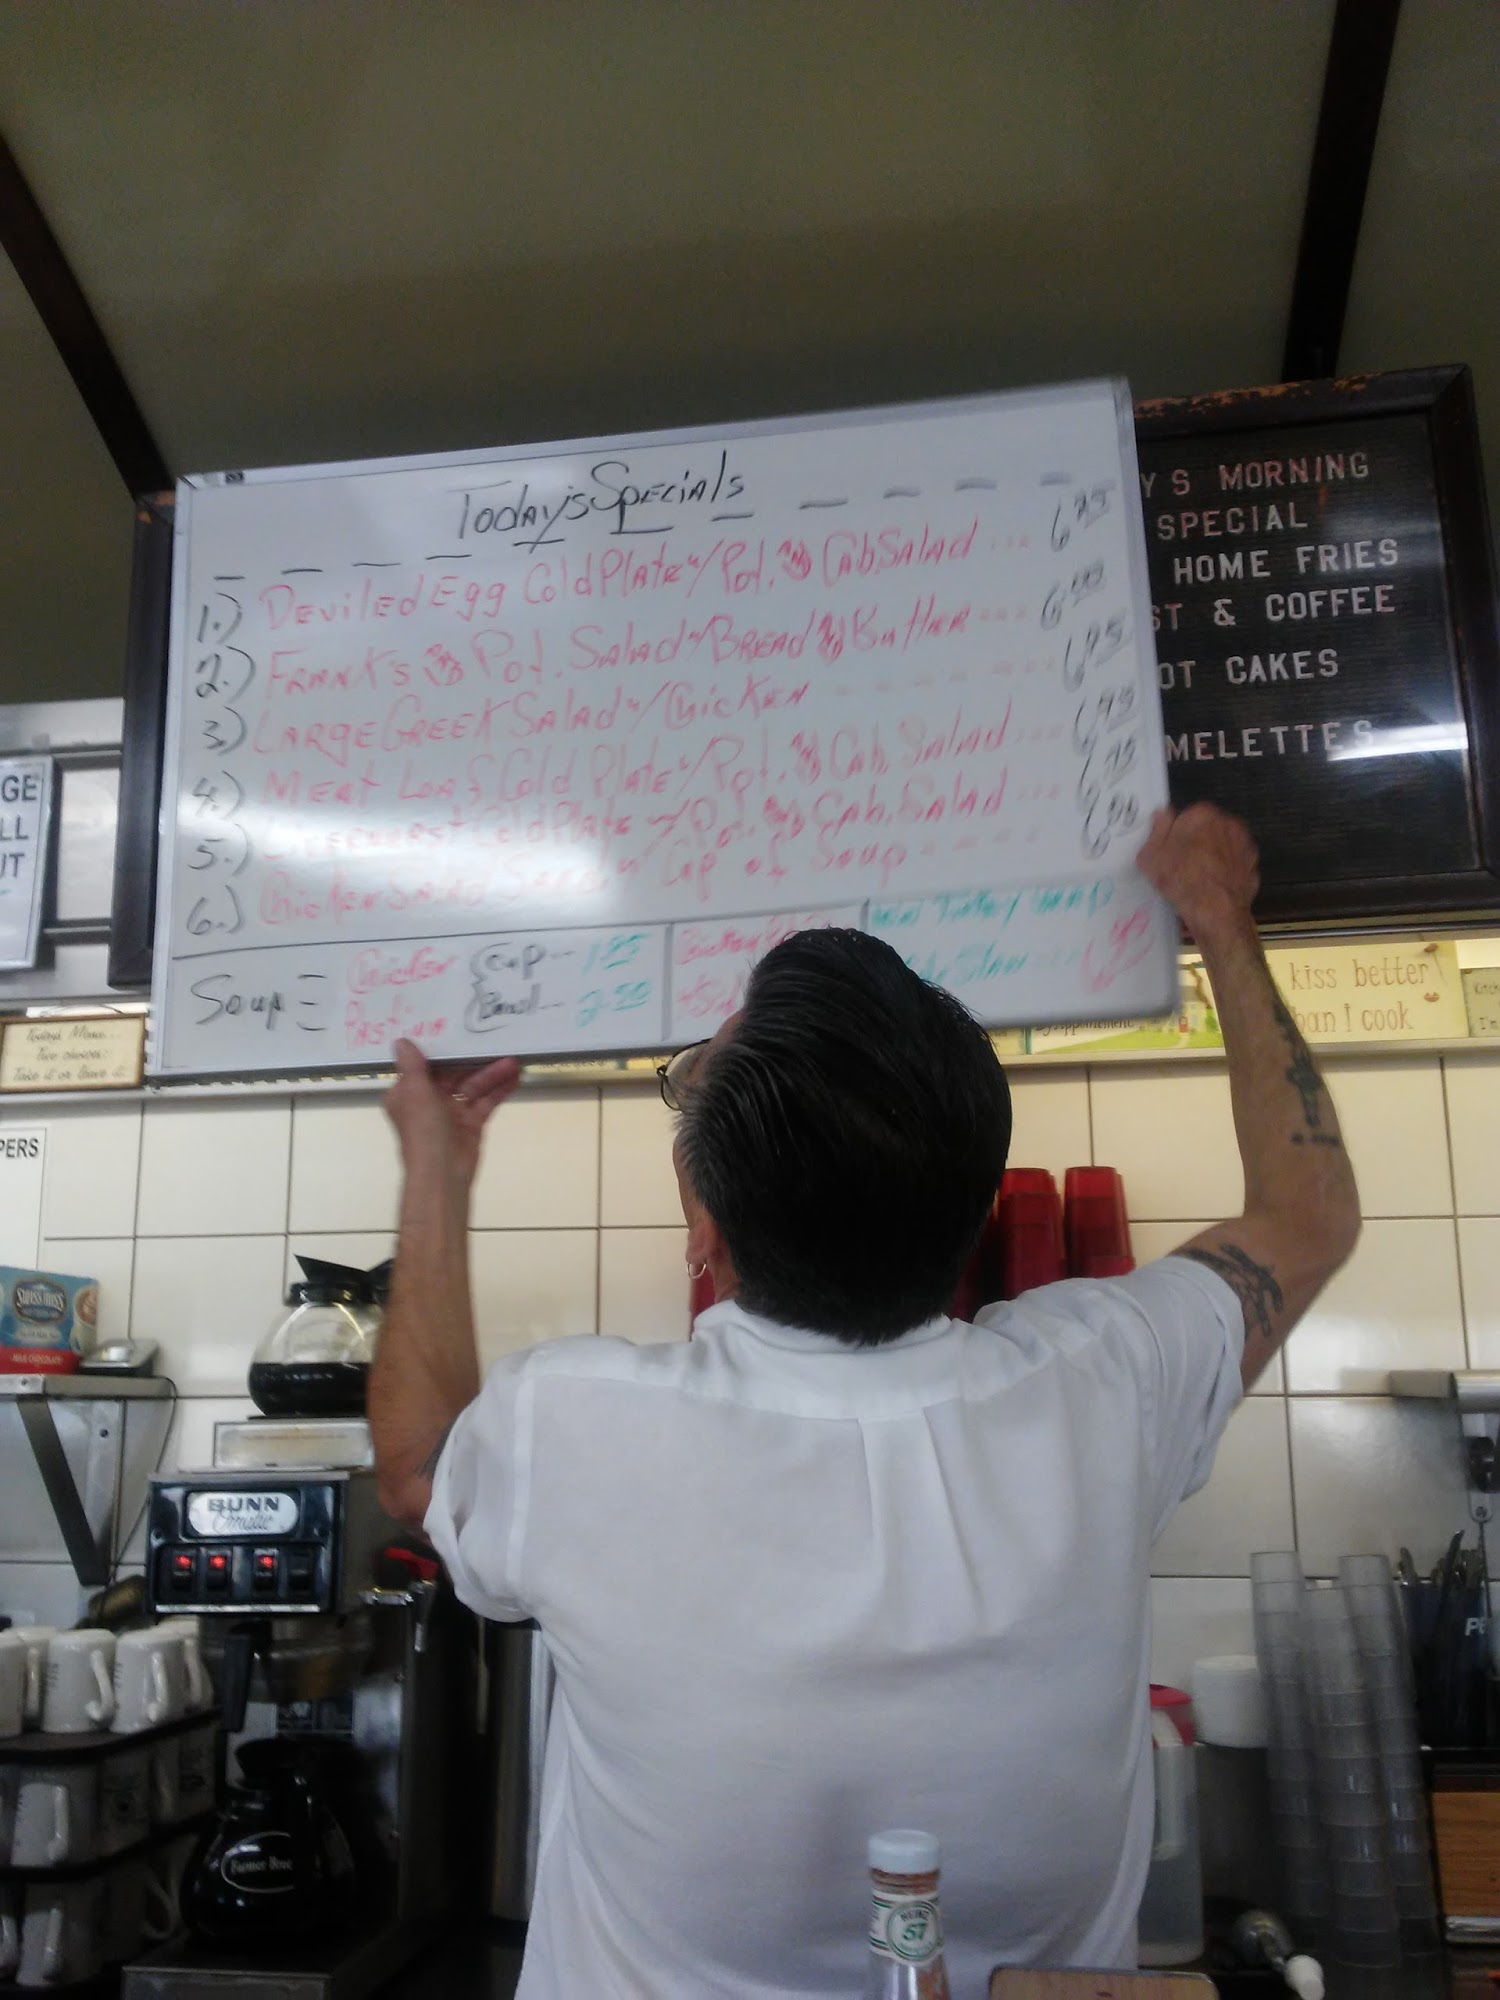 Today's Specials
1.) Deviled Egg Cold Plate w/ Pot. & Cab. Salad 6.95
2.) Frank's & Pot. Salad w/ Bread & Butter 6.00
3.) Large Greek Salad w/ Chicken 6.95
4.) Meat Loaf Cold Plate w/ Pot. & Cab. Salad 6.95
5.) Liverwurst Cold Plate w/ Pot. & Cab. Salad
6.) Chicken Salad w/ Cup of Soup
Soup
Chicken
Pastina
Cup 1.85
Bowl 2.50
Turkey Wrap
Slaw
YS MORNING
SPECIAL
HOME FRIES
ST & COFFEE
OT CAKES
MELETTES
GE
LL
UT
Todays Menu...
Two choices:
Take it or leave it
kiss better
han I cook
by Appointment
PERS
SWISS MISS
MILK CHOCOLATE
BUNN
Farmer Bros
HEINZ
57